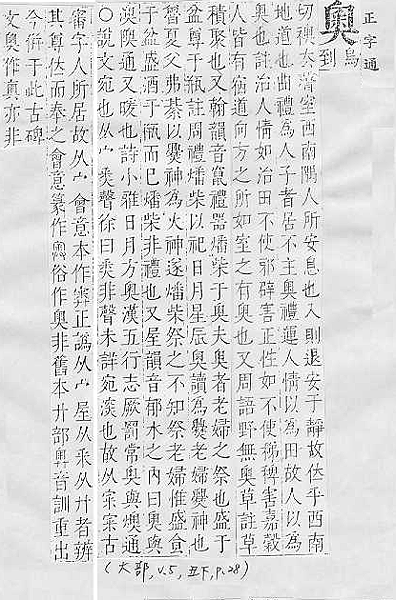 正字通
奧 烏到
切襖去聲室西南隅人所安息也入則退安于靜故位乎西南
地道也曲禮為人子者居不主奧禮運人情以為田故人以為
奧也註治人情如治田不使邪辟害正性如不使稊稗害嘉穀
人皆有宿道向方之所如室之有奧也又周語野無奧草註草
積聚也又翰韻音竄禮器燔柴于奧夫奧者老婦之祭也盛于
盆尊于瓶註周禮燔柴以祀日月星辰奧讀為爨老婦爨神也
夏父弗綦以爨神為火神遂燔柴祭之不知祭老婦惟盛食
于盆盛酒于瓶而已燔柴非禮也又屋韻音郁木之內曰奧與
澳隩通又暖也詩小雅日月方奧漢五行志厥罰常奧與燠通
○說文宛也从宀𢍏聲徐曰𢍏非聲未詳宛深也故从宷宷古
審字人所居故从宀會意本作正譌从宀屋从釆从廾者辨
其尊位而奉之會意篆作俗作奧非舊本廾部音訓重出
今併于此古碑
文奧作亦非
(大部,v.5,丑下,P.28)